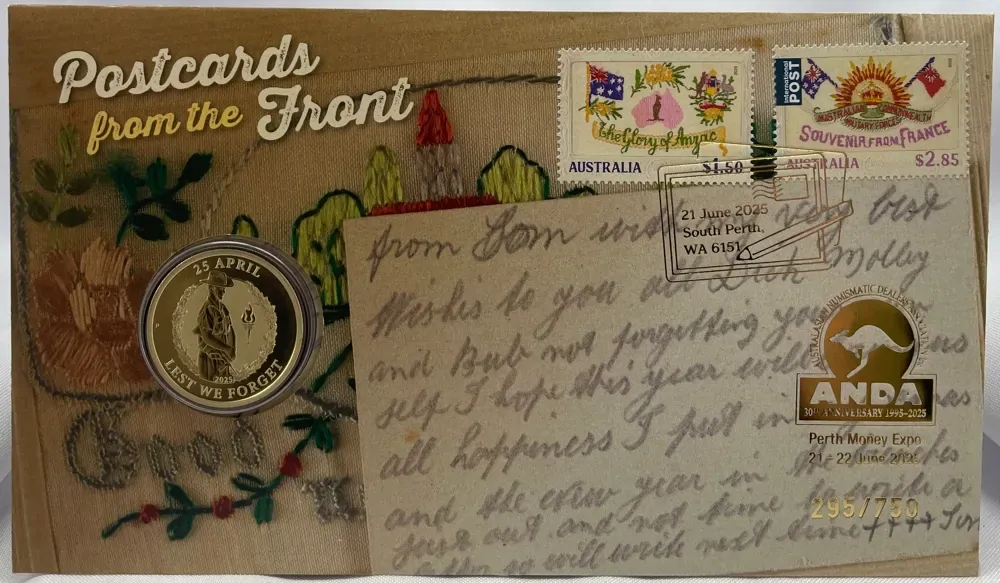 Postcards
from the Front
The Glory of Anzac
AUSTRALIA $1.50
International
POST
AUSTRALIAN COMMONWEALTH
MILITARY FORCES
SOUVENIR FROM FRANCE
AUSTRALIA $2.85
21 June 2025
South Perth,
WA 6151
25 APRIL
P
2025
LEST WE FORGET
from Tom with my very best
Wishes to you all Dick Molley
and Bub not forgetting your
self I hope this year will
all happiness I put in
and the new year in the
just out and not time to write a
so will write next time ++++ Tom
AUSTRALASIAN NUMISMATIC DEALERS ASSOCIATION
ANDA
30TH ANNIVERSARY 1995-2025
Perth Money Expo
21 - 22 June 2025
295/750